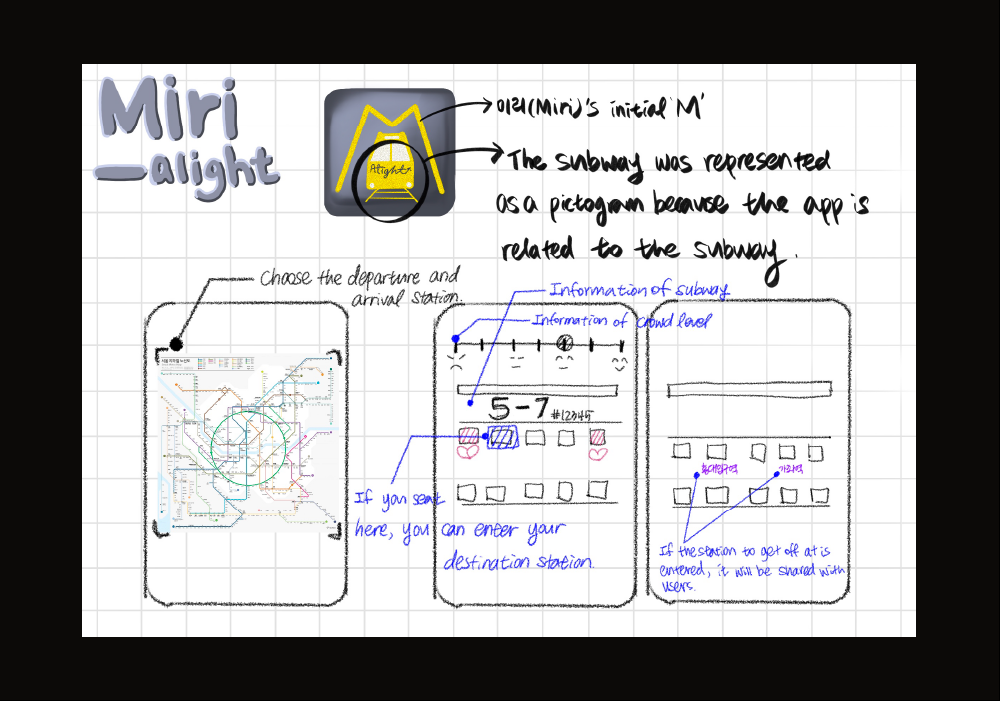 Miri
-alight
Alight
미리(Miri)'s initial 'M'
The subway was represented
as a pictogram because the app is
related to the subway.
Choose the departure and
arrival station.
Information of subway
Information of crowd level
5-7 #12345
If you seat
here, you can enter your
destination station.
홍대입구역
가좌역
If the station to get off at is
entered, it will be shared with
users.